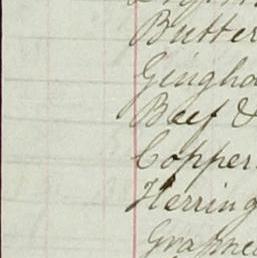 Butter
Gingha
Beef &
Copper
Herring
Grapnel